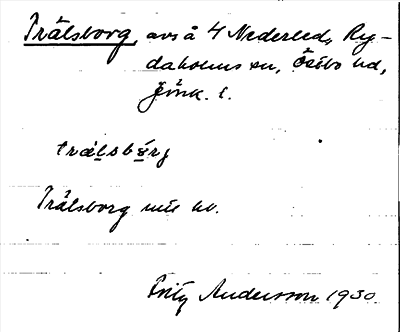 Trälsborg, avs å 4 Nederled, Ry-
daholms sn, Östbo hd,
Jönk. l.
trälsbǻrj
Trälsborg
Fritz Andersson 1930